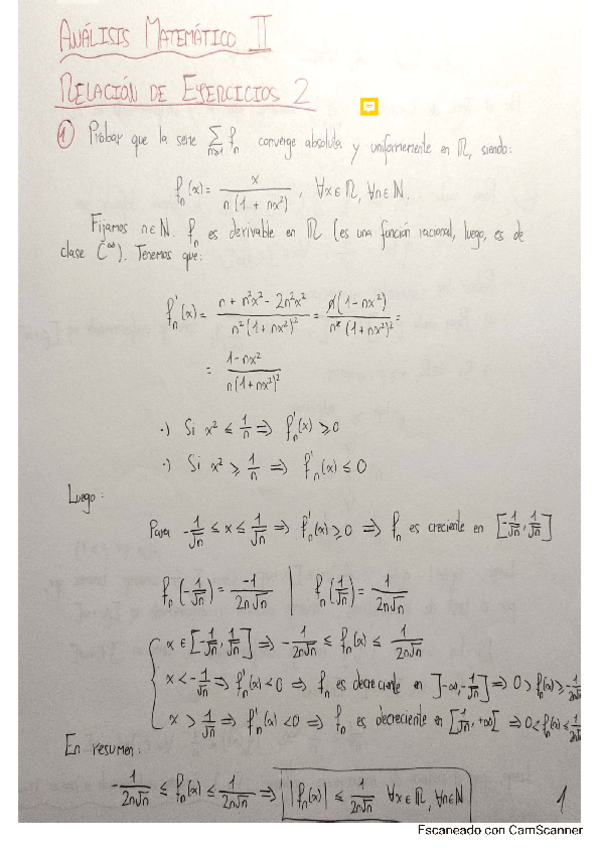 ANÁLISIS MATEMÁTICO II
RELACIÓN DE EJERCICIOS 2
① Probar que la serie ∑_{n≥1} f_n converge absoluta y uniformemente en ℝ, siendo:
f_n(x) = x / (n(1 + nx²)), ∀x∈ℝ, ∀n∈ℕ.
Fijamos n∈ℕ. f_n es derivable en ℝ (es una función racional, luego, es de
clase C^∞). Tenemos que:
f'_n(x) = (n + n²x² - 2n²x²) / (n²(1+nx²)²) = n(1-nx²) / (n²(1+nx²)²) =
= (1-nx²) / (n(1+nx²)²)
·) Si x² ≤ 1/n ⟹ f'_n(x) ≥ 0
·) Si x² ≥ 1/n ⟹ f'_n(x) ≤ 0
Luego:
Para -1/√n ≤ x ≤ 1/√n ⟹ f'_n(x) ≥ 0 ⟹ f_n es creciente en [-1/√n, 1/√n]
f_n(-1/√n) = -1/(2n√n) | f_n(1/√n) = 1/(2n√n)
x ∈ [-1/√n, 1/√n] ⟹ -1/(2n√n) ≤ f_n(x) ≤ 1/(2n√n)
x < -1/√n ⟹ f'_n(x) < 0 ⟹ f_n es decreciente en ]-∞, -1/√n] ⟹ 0 > f_n(x) ≥ -1/(2n√n)
x > 1/√n ⟹ f'_n(x) < 0 ⟹ f_n es decreciente en [1/√n, +∞[ ⟹ 0 < f_n(x) ≤ 1/(2n√n)
En resumen:
-1/(2n√n) ≤ f_n(x) ≤ 1/(2n√n) ⟹ |f_n(x)| ≤ 1/(2n√n) ∀x∈ℝ, ∀n∈ℕ
1
Escaneado con CamScanner